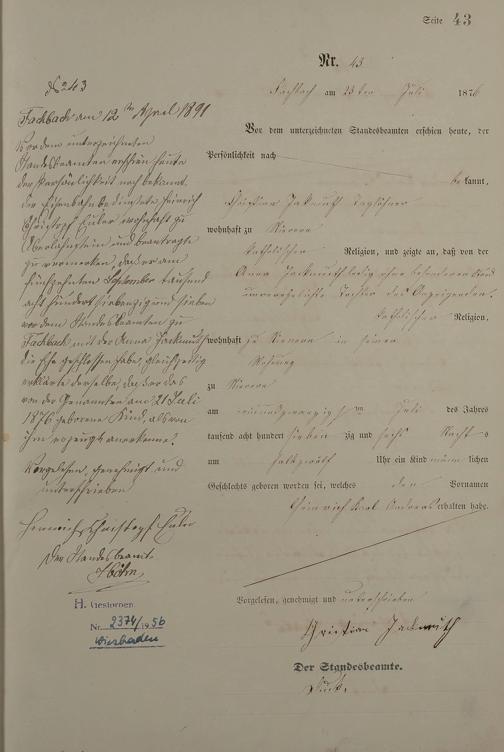 Seite 43
Nr. 43
Fachbach am 23ten Juli 1876
Vor dem unterzeichneten Standesbeamten erschien heute, der
Persönlichkeit nach
bekannt,
Christian Jackmuth Taglöhner
wohnhaft zu Nievern
katholischer Religion, und zeigte an, daß von der
Anna Jackmuth ledig ohne besonderen Stand
unverehelichte Tochter des Anzeigenden,
katholischer Religion,
wohnhaft zu Nievern in seiner
Wohnung
zu Nievern
am einundzwanzigsten Juli des Jahres
tausend acht hundert siebenzig und sechs Nachts
um halb zwölf Uhr ein Kind männlichen
Geschlechts geboren worden sei, welches den Vornamen
Heinrich Karl Andreas erhalten habe.
Vorgelesen, genehmigt und unterschrieben
Christian Jackmuth
Der Standesbeamte.
No 243
Fachbach am 12ten April 1891
Vor dem unterzeichneten
Standesbeamten erschien heute
der Persönlichkeit nach bekannt
der Eisenbahnbedienstete Heinrich
Christoph Euler wohnhaft zu
Oberlahnstein und beantragte
zu vermerken, daß er am
fünfzehnten September tausend
acht hundert siebenzig und sieben
vor dem Standesbeamten zu
Fachbach mit der Anna Jackmuth
die Ehe geschlossen habe, gleichzeitig
erklärte derselbe, daß er das
von der Genannten am 21 Juli
1876 geborene Kind, als von
ihm erzeugt anerkenne.
Vorgelesen, genehmigt und
unterschrieben
Heinrich Christoph Euler
Der Standesbeamte
Höhn
H. Gestorben
Nr. 2374/1956
Wiesbaden